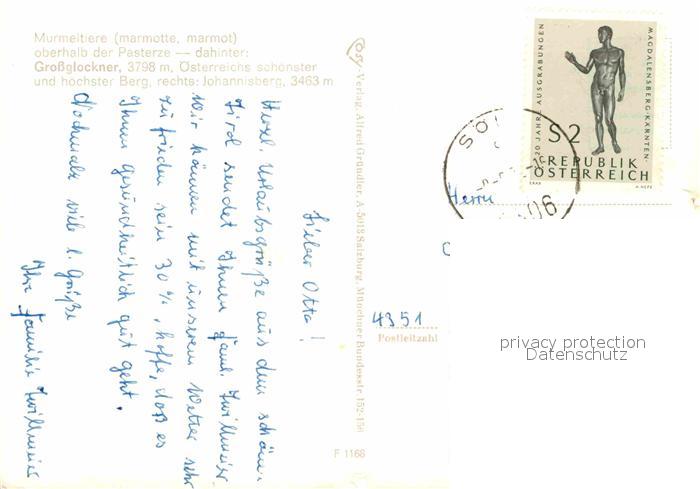 Murmeltiere (marmotte, marmot)
oberhalb der Pasterze — dahinter:
Großglockner, 3798 m, Österreichs schönster
und höchster Berg, rechts: Johannisberg, 3463 m
Lieber Otto!
Herzl. Urlaubsgrüße aus dem schönen
Tirol sendet Ihnen Fam.
Wir können mit unserem Wetter sehr
zufrieden sein 30%, hoffe, daß es
Ihnen gesundheitlich gut geht.
Nochmals viele l. Grüße
Ihre Familie
Cosy-Verlag, Alfred Gründler, A-5013 Salzburg, Münchner Bundesstr. 152-156
F 1168
20 JAHRE AUSGRABUNGEN
MAGDALENSBERG-KÄRNTEN
S2
REPUBLIK
ÖSTERREICH
SÖL
06
Herrn
4351
Postleitzahl
privacy protection
Datenschutz